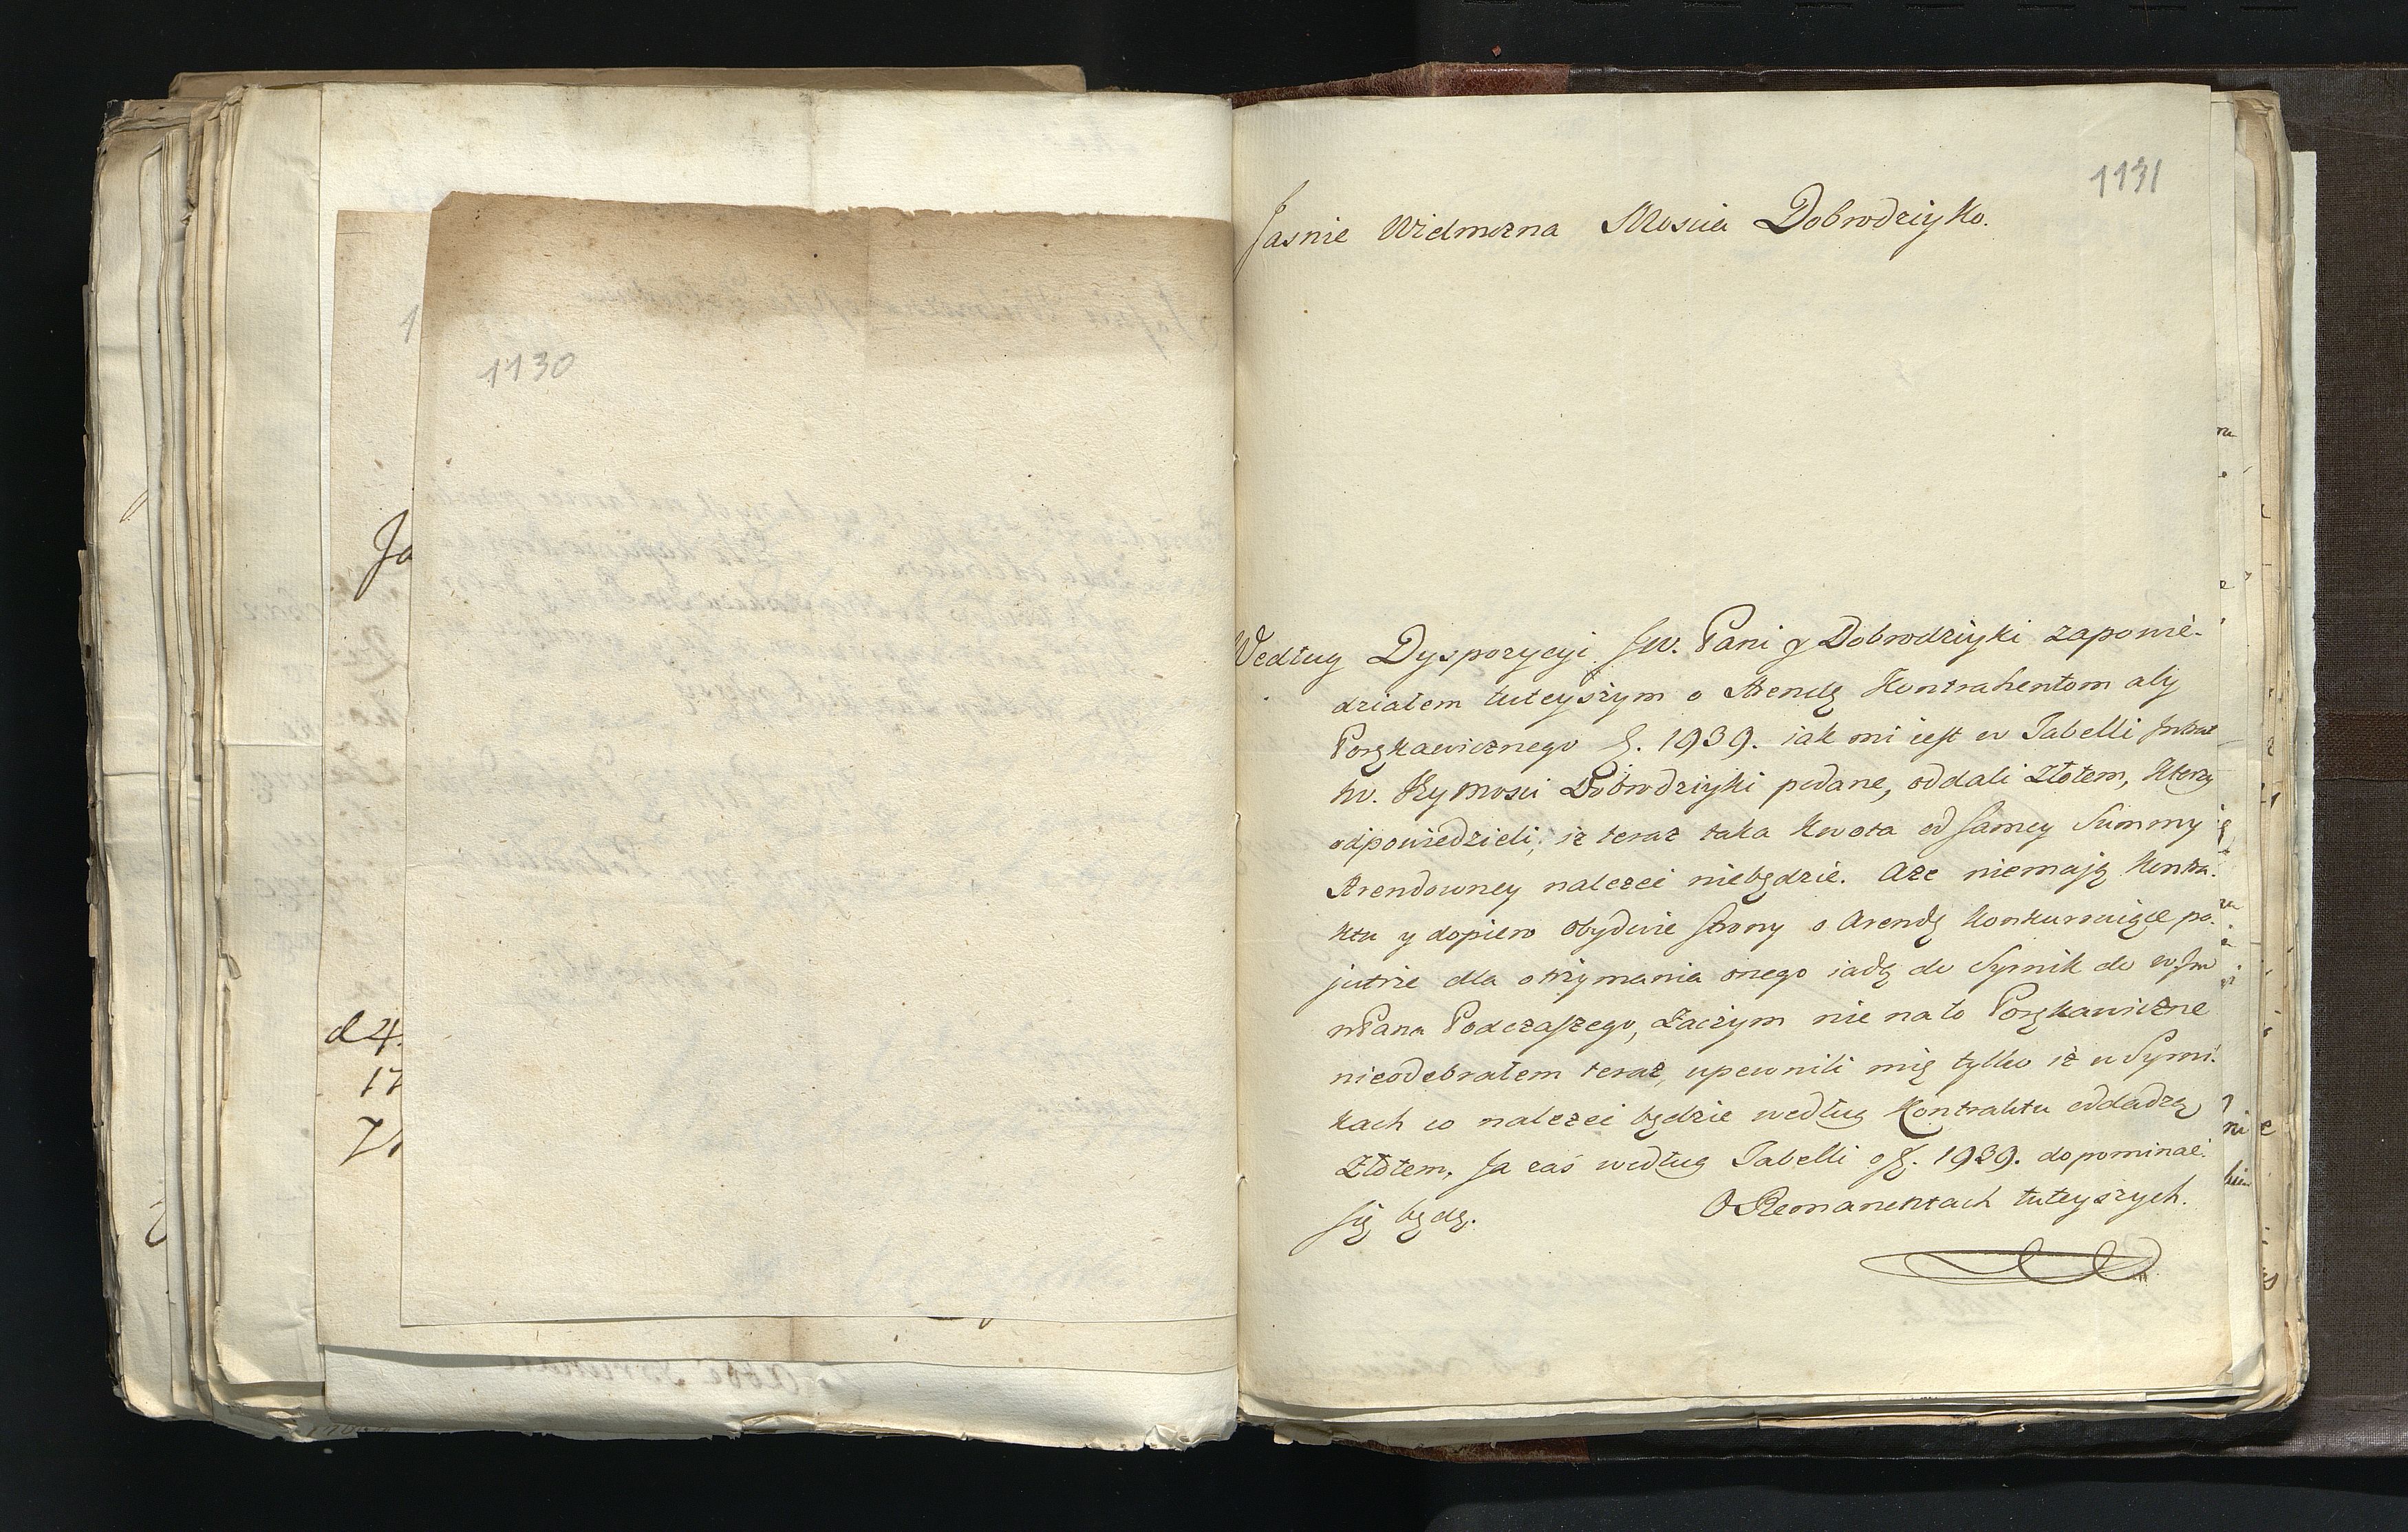 1130
1131
Jasnie Wielmozna Mościa Dobrodziyko.
Według Dyspozycyi JW. Pani y Dobrodziyki zapowie-
działem tuteyszym o Arendę Kontrahentom aby
Porękawicznego f. 1939. iak mi iest w Tabelli
Jey Mości Dobrodziyki podane, oddali Złotem, Ktorzy
odpowiedzieli; iż teraz taka kwota od samey Summy
Arendowney należeć niebędzie. Aże niemaią Kontra-
ktu y dopiero obydwie strony o Arendę konkuruiące po-
jutrze dla otrzymania onego iadą do Syrnik do
Pana Podczaszego, Zaczym nie na to Porękawiczne
nieodebrałem teraz, upewnili mię tylko iż w Syrni-
kach co należeć będzie według Kontraktu oddadzą
Złotem, Ja zaś według Tabelli o f. 1939. dopominać
się będę.
O Remanentach tuteyszych.